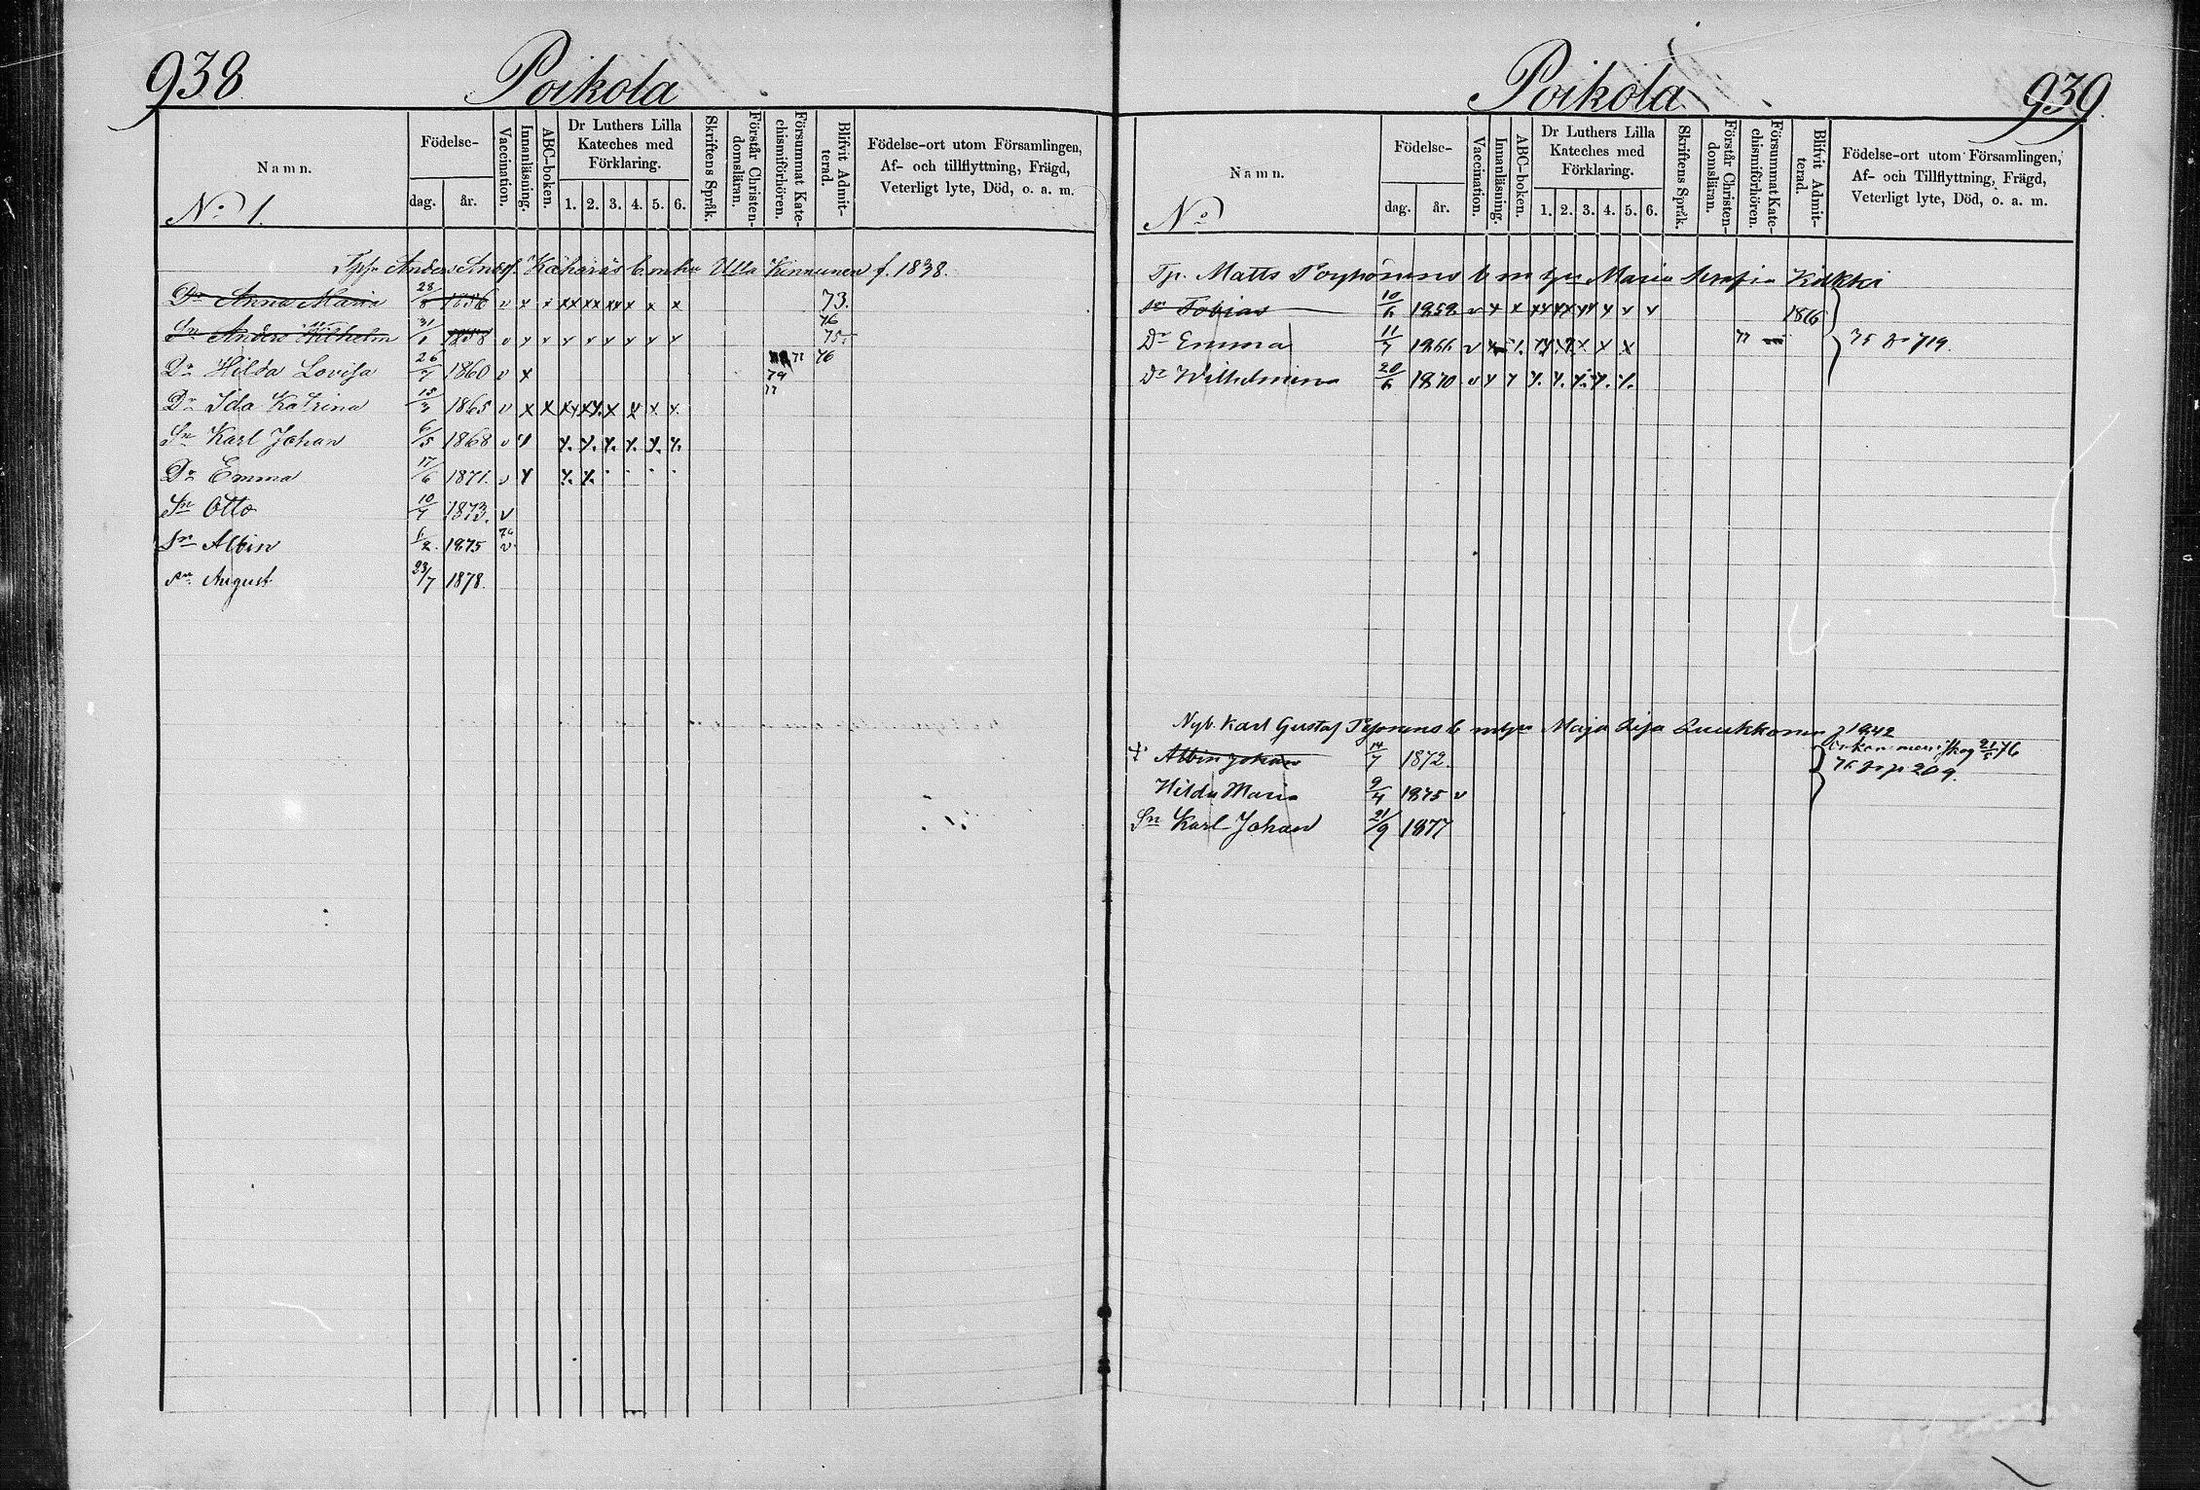 938
Poikola
Namn.
Födelse-
dag.
år.
Vaccination.
Innanläsning.
ABC-boken.
Dr Luthers Lilla
Kateches med
Förklaring.
1. 2. 3. 4. 5. 6.
Skriftens Språk.
Förstår Christen-
domsläran.
Försummat Kate-
chismiförhören.
Blifvit Admit-
terad.
Födelse-ort utom Församlingen,
Af- och tillflyttning, Frägd,
Veterligt lyte, Död, o. a. m.
No 1.
Anders And:s. Kähäräs b m hu Ulla Kinnunen f. 1838.
Dr Anna Maria 28/8 1856 v x x xx xx xx x x x 73.
76
Sn Anders Wilhelm 31/1 1858 v x x x x x x x x 75.
Dr Hilda Lovisa 26/7 1860 v x 77 76
79
77
Dr Ida Katrina 15/3 1865 v x x xx xx x x x x
Sn Karl Johan 6/5 1868 v x x. x. x. x. x. x.
Dr Emma 17/6 1871. v x x. x.
Sn Otto 10/7 1873. v
Sn Albin 1875 76 v
Sn August 23/7 1878.
Poikola
939.
Namn.
Födelse-
dag.
år.
Vaccination.
Innanläsning.
ABC-boken.
Dr Luthers Lilla
Kateches med
Förklaring.
1. 2. 3. 4. 5. 6.
Skriftens Språk.
Förstår Christen-
domsläran.
Försummat Kate-
chismiförhören.
Blifvit Admit-
terad.
Födelse-ort utom Församlingen,
Af- och Tillflyttning, Frägd,
Veterligt lyte, Död, o. a. m.
No
Tp. Matts Pöyhönens b m hu Maria Kukki
Sn Tobias 10/6 1858 v x x xx xx xx x x x 1876
Dr Emma 11/7 1866 v 77 75 p 719.
Dr Wilhelmina 20/6 1870 v x x x. x. x. x. x.
Nyb. Karl Gustaf b m hu Maja Lisa Luukkonen f 1842
Albin Johan 14/7 1872. 21/5 76
76 p 209.
Hilda Maria 9/4 1875 v
Sn Karl Johan 21/9 1877